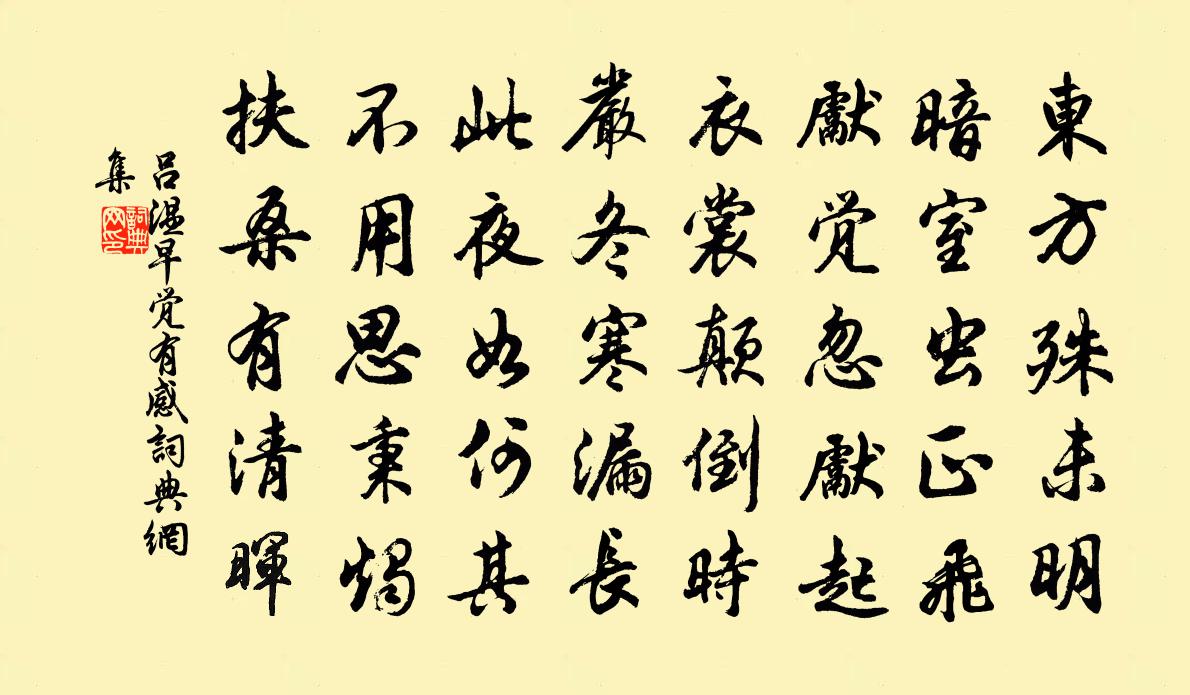 東方殊未明
暗室虫正飛
獻覚忽獻起
衣裳顛倒時
嚴冬寒漏長
此夜如何其
不用思秉燭
扶桑有清暉
吕温早覚有感詞典網
集
詞典
网印